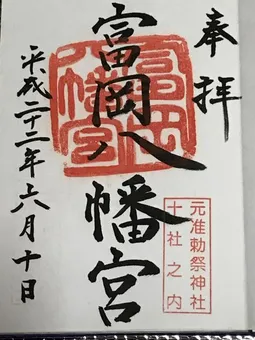 奉拝
元准勅祭神社
十社之内
富岡八幡宮
富岡
八幡宮
平成二十二年六月十日